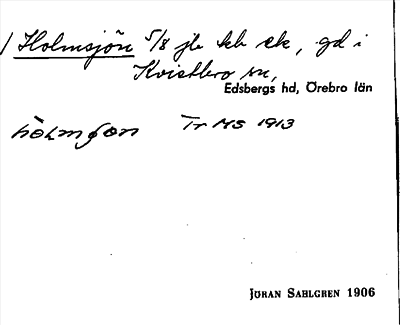 Holmsjön 5/8 jb kb sk, gd i
Kvistbro sn,
Edsbergs hd, Örebro län
hòlmʃon Tr MS 1913
JÖRAN SAHLGREN 1906